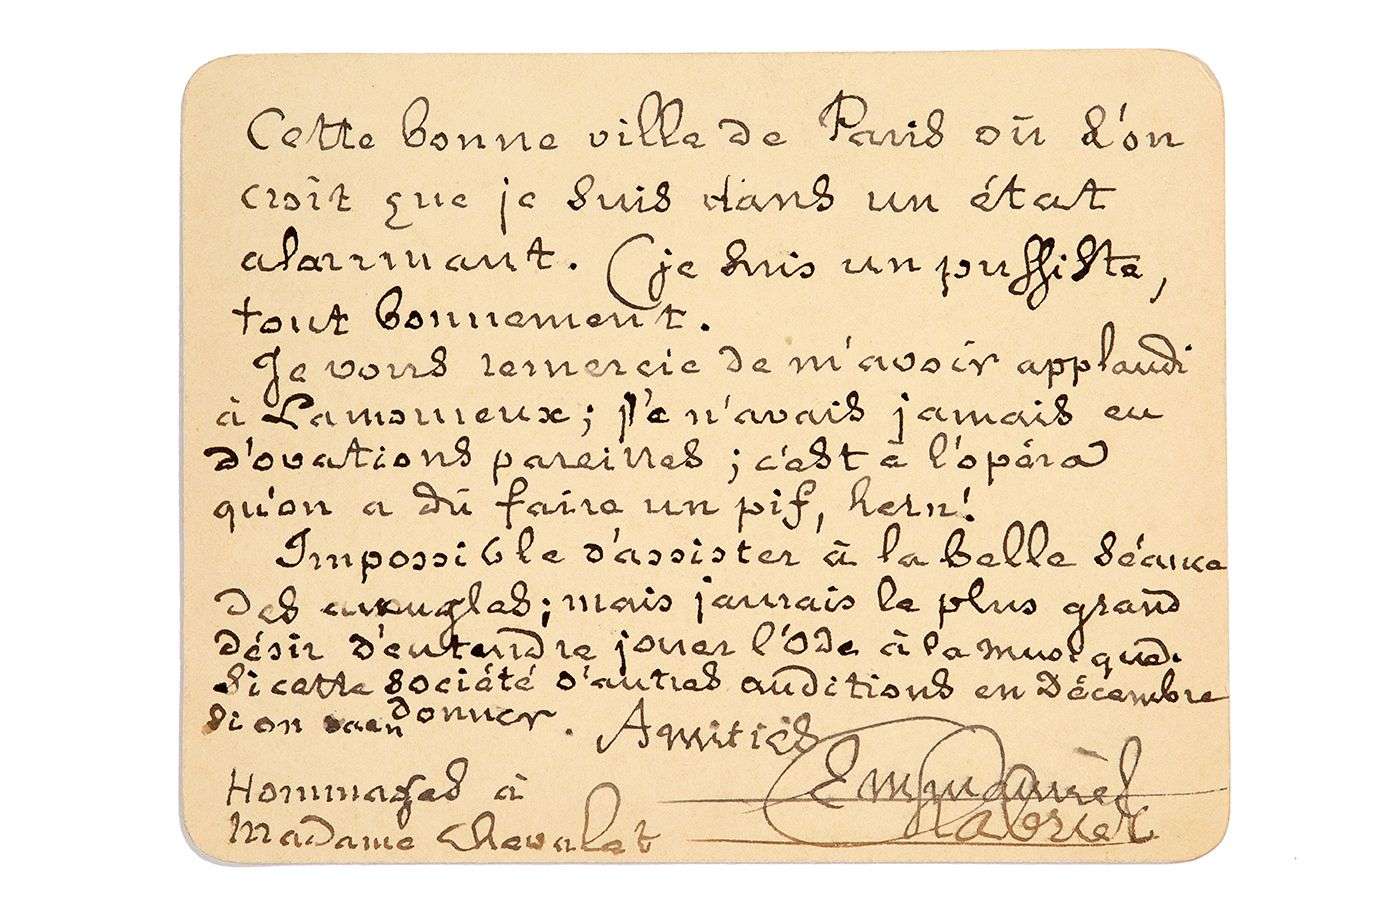 Cette bonne ville de Paris où l'on
croit que je suis dans un état
alarmant. (je suis un pussiste,
tout bonnement.
Je vous remercie de m'avoir applaudi
à Lamoureux; je n'avais jamais eu
d'ovations pareilles; c'est à l'opéra
qu'on a dû faire un pif, hein!
Impossible d'assister à la belle séance
des aveugles; mais j'aurais le plus grand
désir d'entendre jouer l'Ode à la musique.
Si cette société d'autres auditions en Décembre
si on donner. Amitiés
Emmanuel
Chabrier
Hommages à
Madame Chevalet